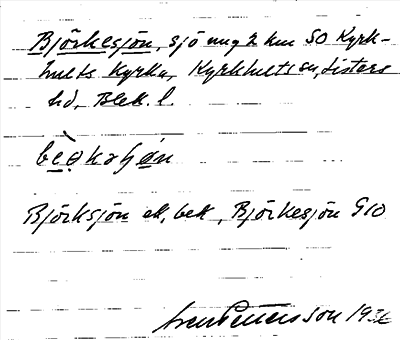 Björkesjön, sjö ung 2 km SO Kyrk-
hults kyrka, Kyrkhults sn, Listers
hd, Blek. l.
Björksjön ek, bek, Björkesjön G10
Pettersson 1936